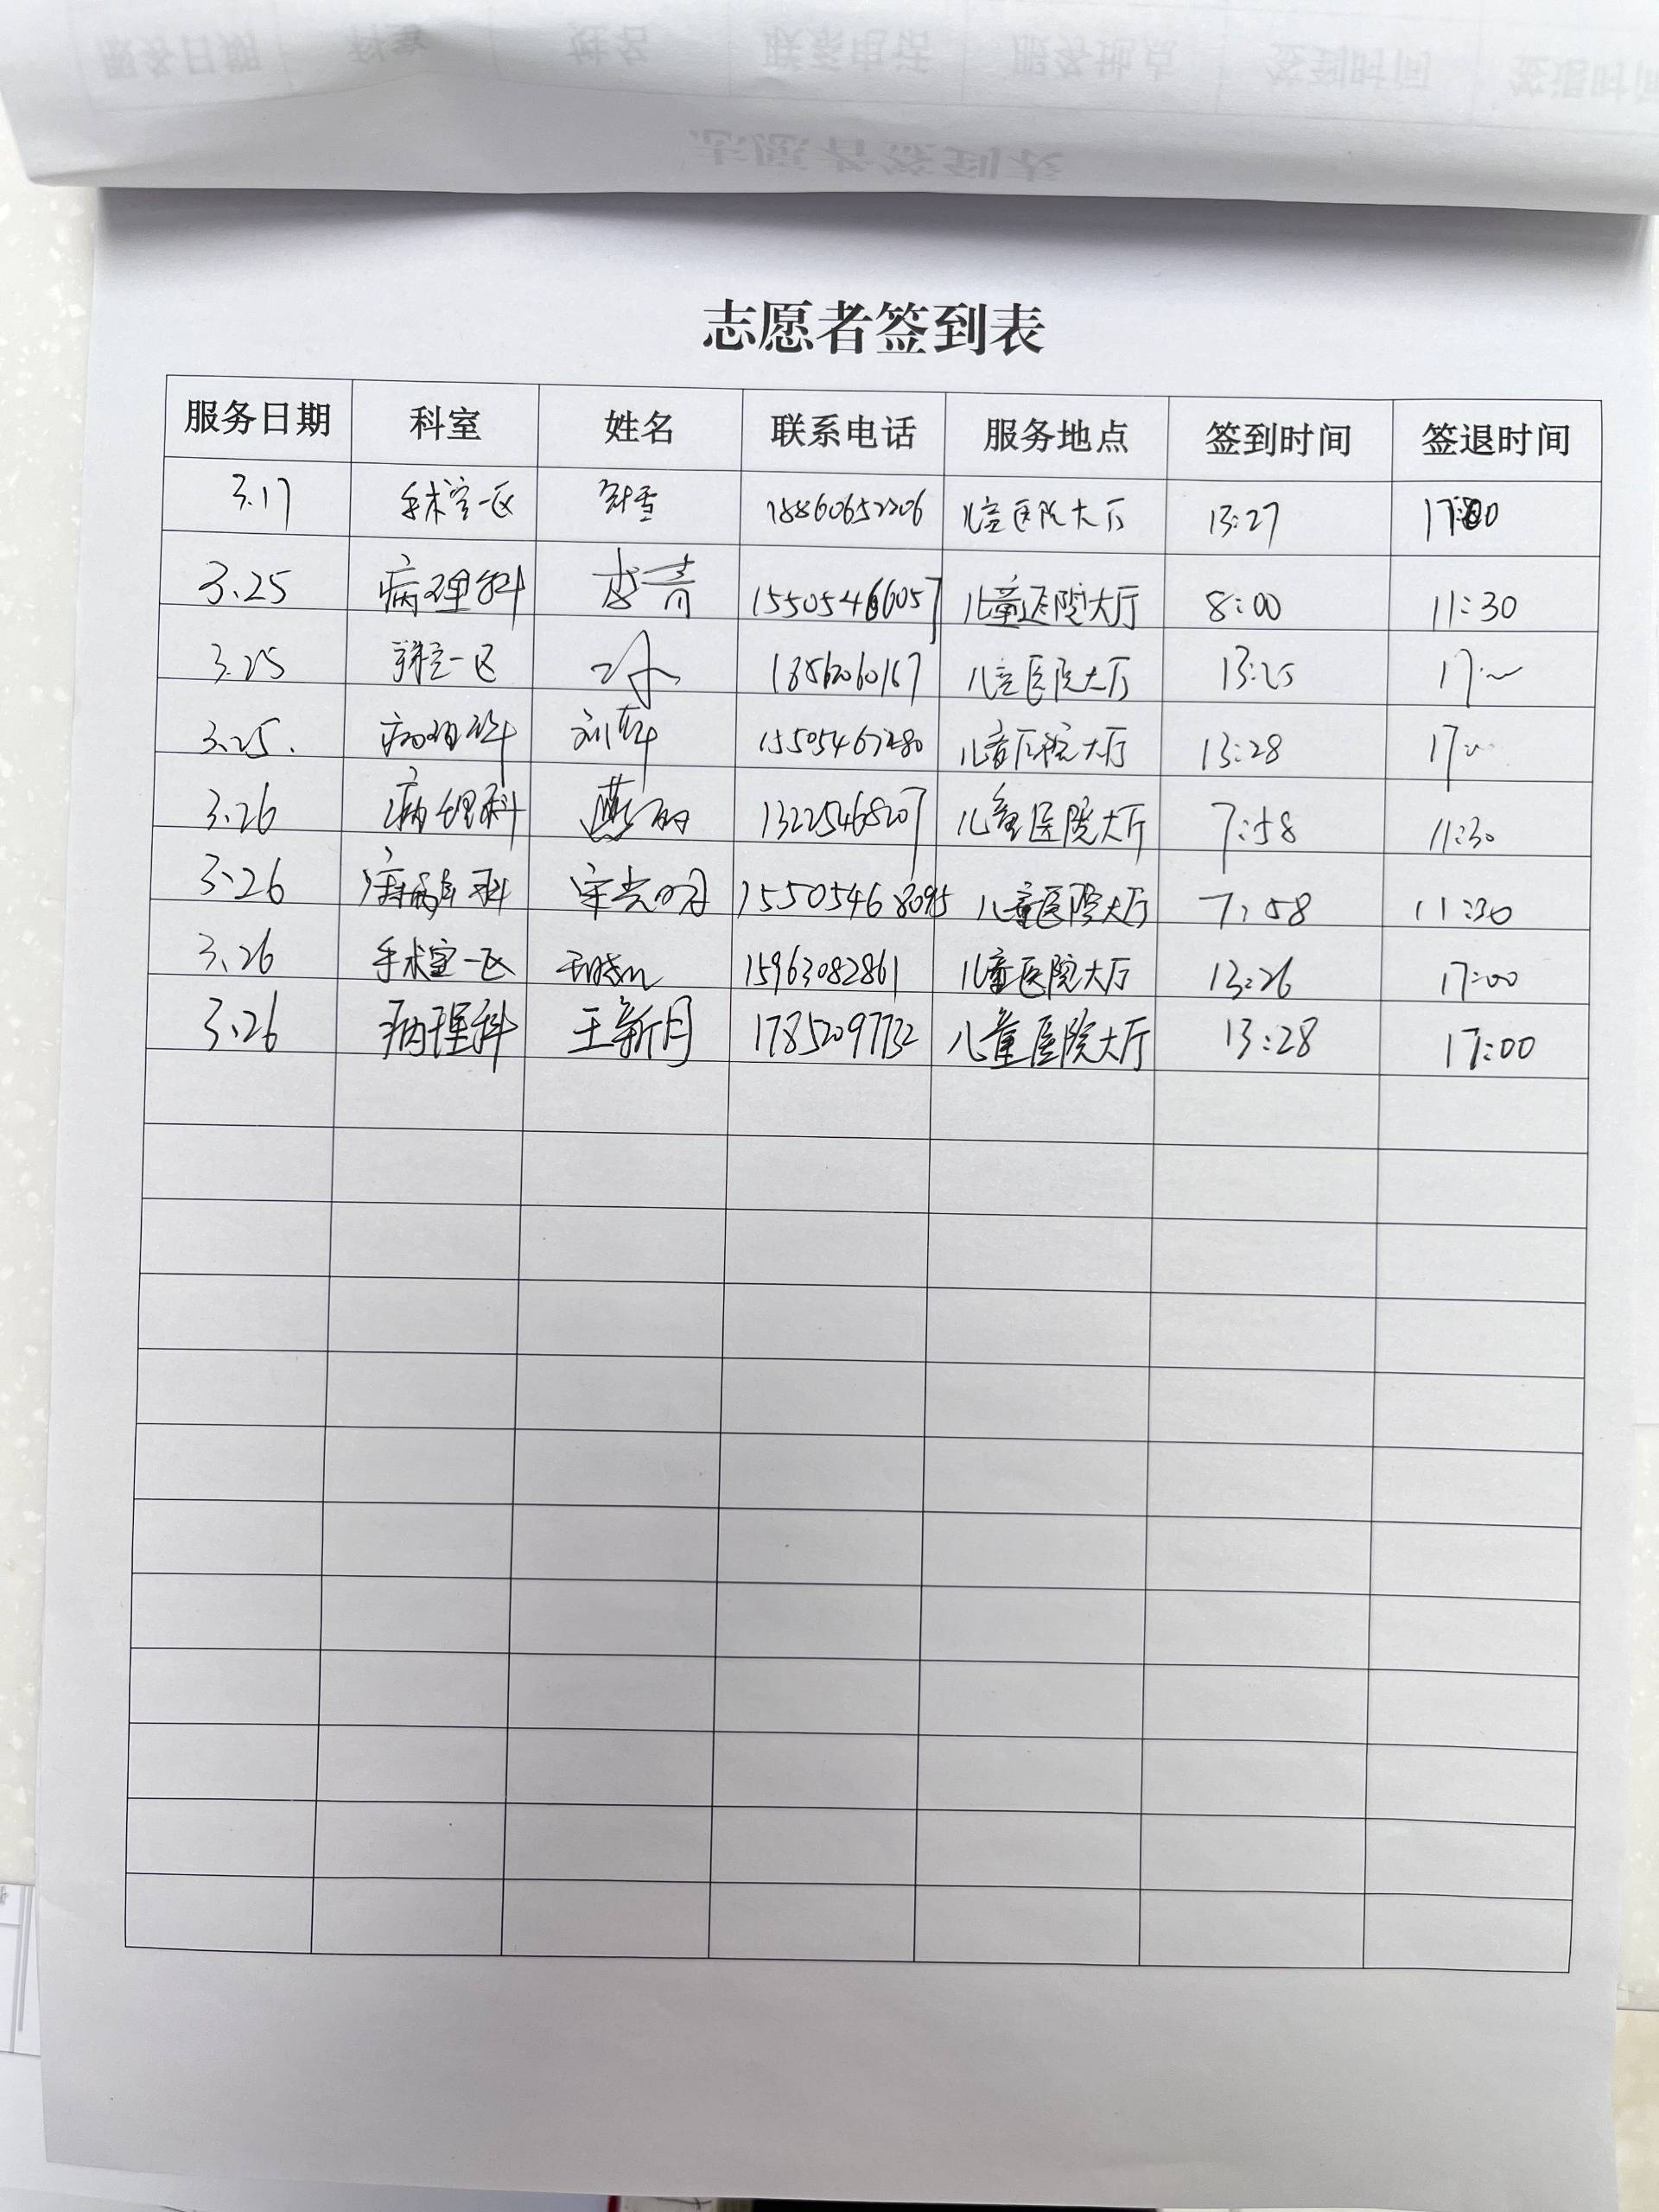 服务日期 科室 姓名 联系电话 服务地点 签到时间 签退时间
志愿者签到表
志愿者签到表
服务日期 科室 姓名 联系电话 服务地点 签到时间 签退时间
3.17 手术室一区 18860652206 儿童医院大厅 13:27 17:00
3.25 病理科 李青 15505466057 儿童医院大厅 8:00 11:30
3.25 手术室一区 儿童医院大厅 13:25 17:
3.25. 病理科 15505467280 儿童医院大厅 13:28 17:
3.26 病理科 燕丽 13225468207 儿童医院大厅 7:58 11:30
3.26 科 15505468095 儿童医院大厅 7:58 11:30
3.26 手术室一区 15963082861 儿童医院大厅 13:26 17:00
3.26 病理科 王新月 17852097732 儿童医院大厅 13:28 17:00